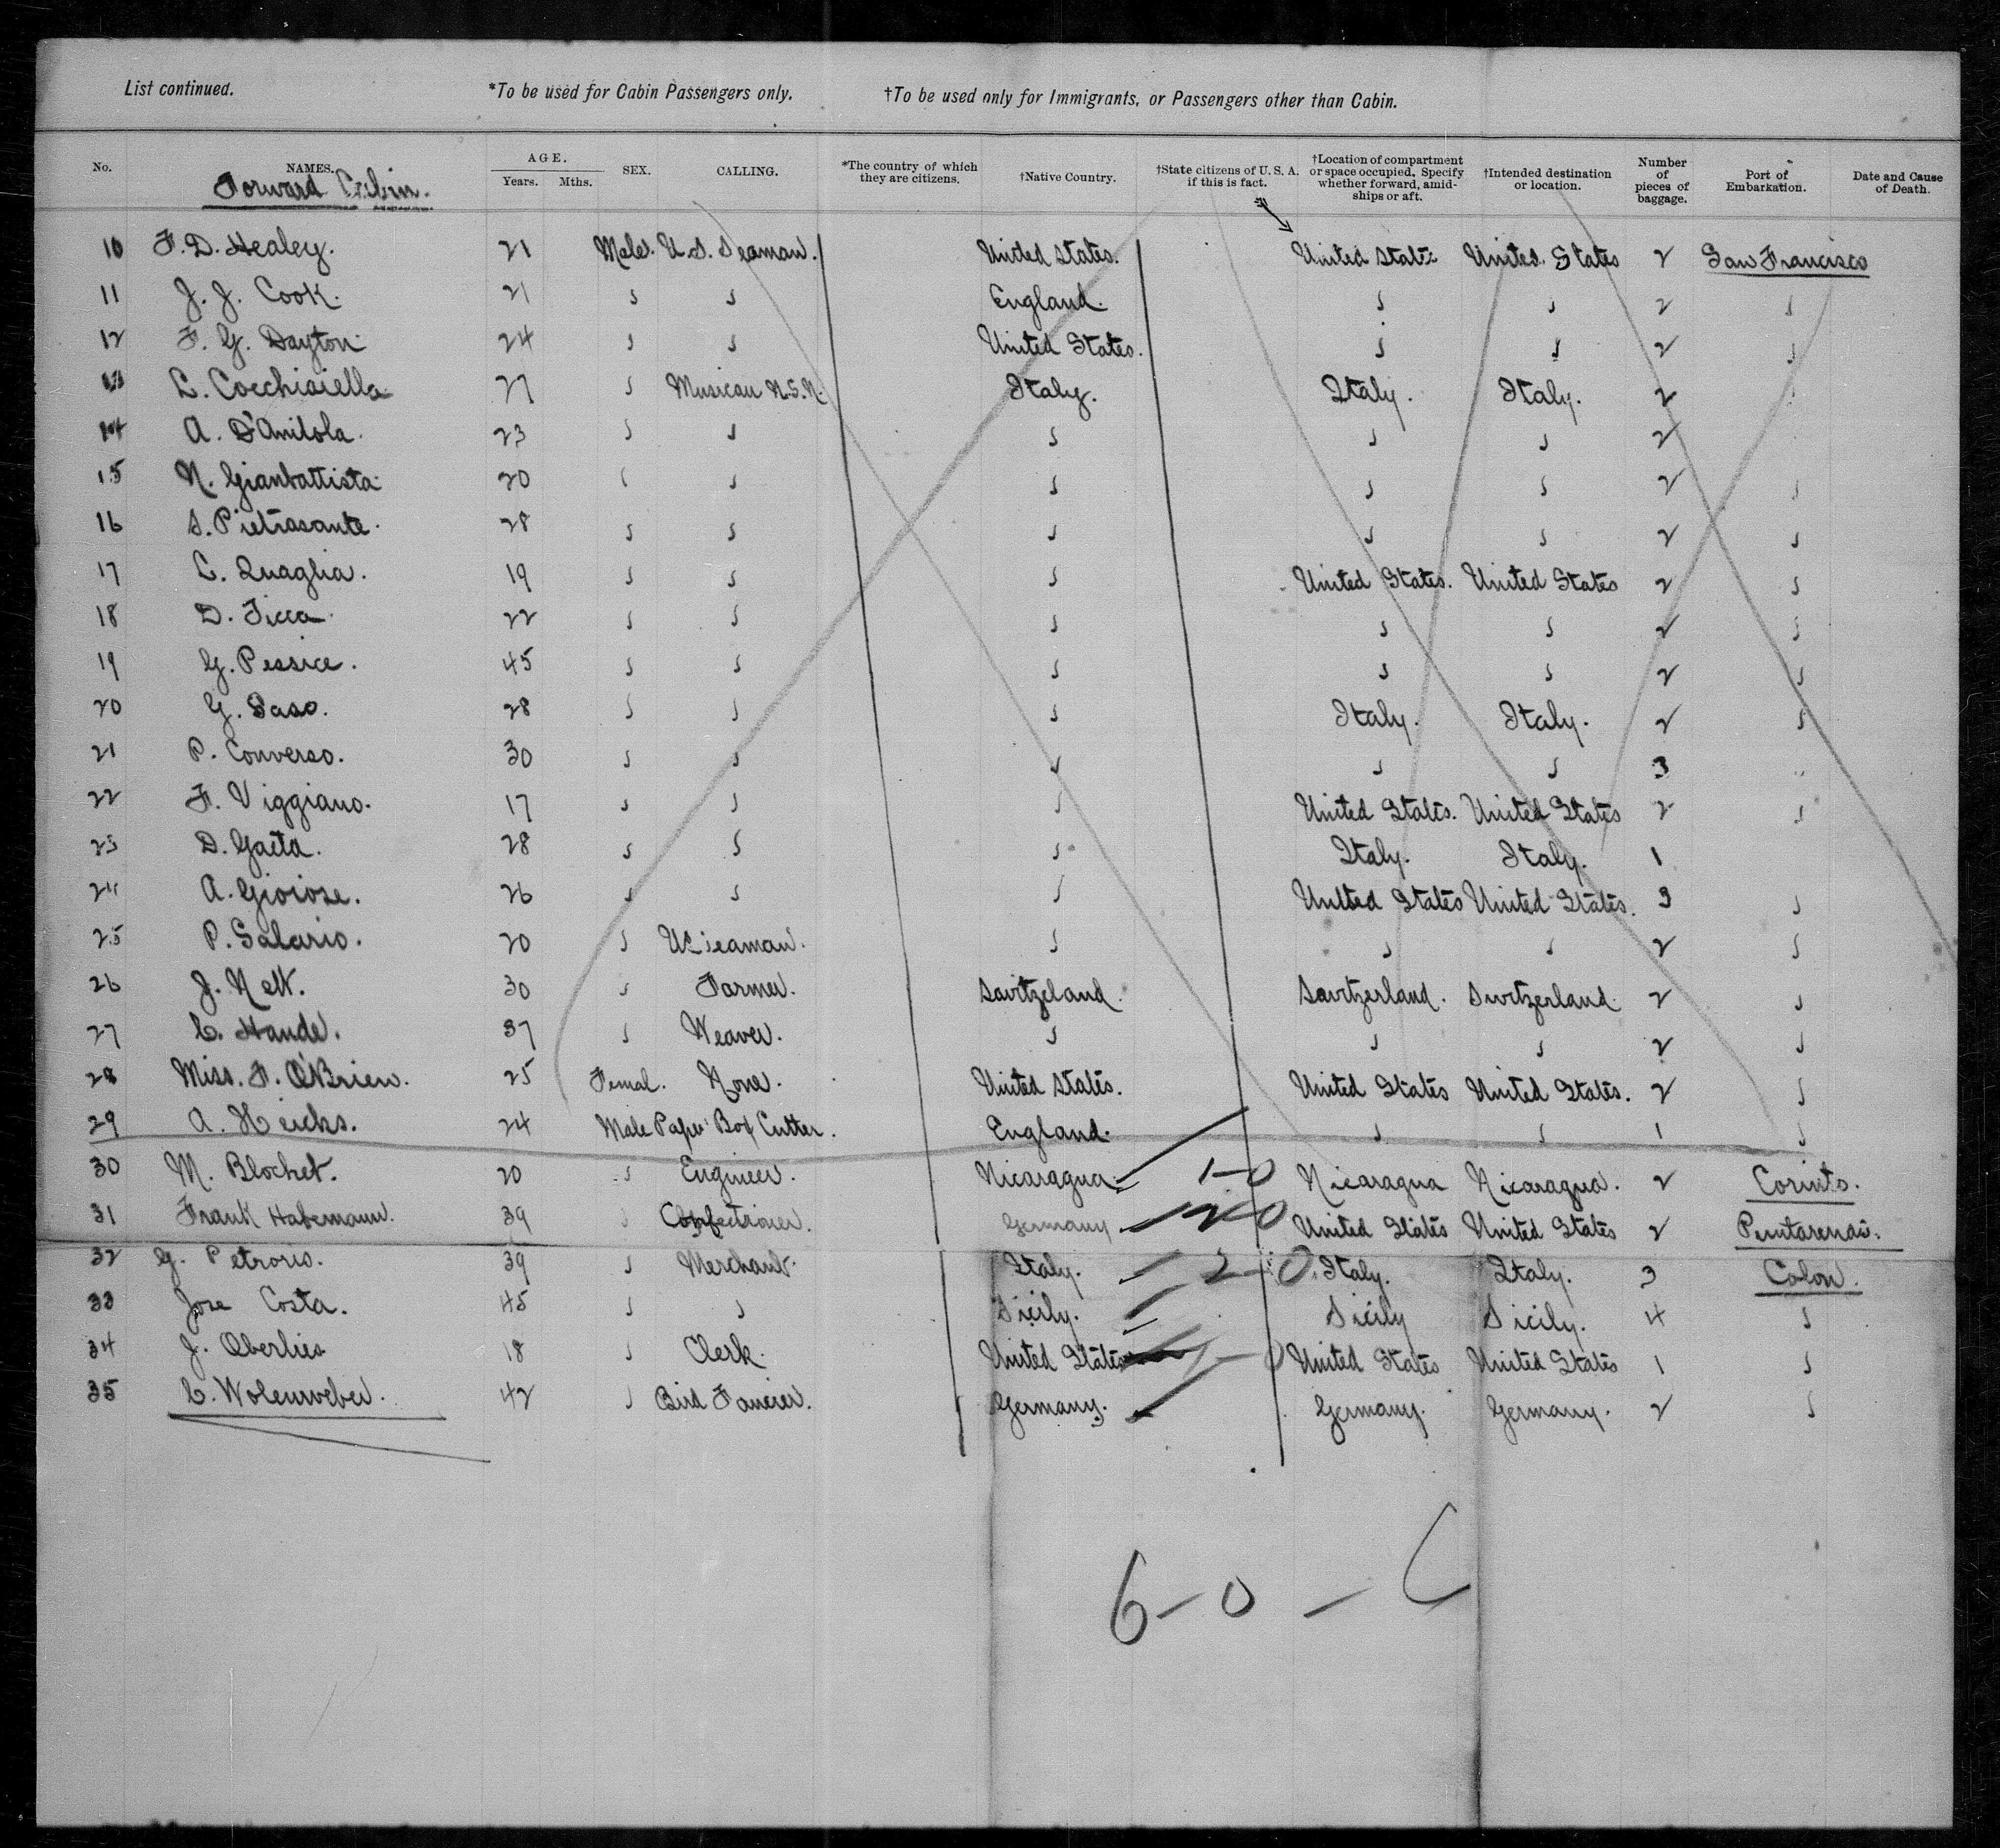 List continued. *To be used for Cabin Passengers only. †To be used only for Immigrants, or Passengers other than Cabin.
No. NAMES. AGE. Years. Mths. SEX. CALLING. *The country of which they are citizens. †Native Country. †State citizens of U. S. A. if this is fact. †Location of compartment or space occupied. Specify whether forward, amidships or aft. †Intended destination or location. Number of pieces of baggage. Port of Embarkation. Date and Cause of Death.
Forward Cabin.
10 F. D. Healey. 21 Male. U. S. Seaman. United States. United States United States 2 San Francisco
11 J. J. Cook. 21 England. 2
12 F. G. Dayton 24 United States. 2
13 C. Cocchiaiella 27 Musican U.S.N. Italy. Italy. Italy. 2
14 A. D'Anitola. 23 2
15 N. Gianbattista 20 2
16 S. Pietrasante. 28 2
17 C. Quaglia. 19 United States. United States 2
18 D. Ficca. 22 2
19 G. Pessice. 45 2
20 G. Saso. 28 Italy. Italy. 2
21 P. Converso. 30 3
22 F. Viggiano. 17 United States. United States 2
23 D. Gaeta. 28 Italy. Italy. 1
24 A. Gioiose. 26 United States United States. 3
25 P. Salario. 20 US Seaman. 2
26 J. Nett. 30 Farmer. Switzeland. Switzerland. Switzerland. 2
27 C. Hande. 37 Weaver. 2
28 Miss. F. O'Brien. 25 Femal. None. United States. United States United States. 2
29 A. Heicks. 24 Male Paper Box Cutter. England. 1
30 M. Blochet. 20 Engineer. Nicaragua. 1-0 Nicaragua Nicaragua. 2 Corinto.
31 Frank Habemann. 39 Confectioner. Germany 2-0 United States United States 2 Puntarenas.
32 G. Petroris. 39 Merchant. Italy. 2-0 Italy. Italy. 3 Colon.
33 Jose Costa. 45 Sicily. Sicily Sicily. 4
34 J. Oberlies 18 Clerk. United States 1-0 United States United States 1
35 C. Wolenweber. 42 Bird Fancier. Germany. Germany. Germany. 2
6-0-